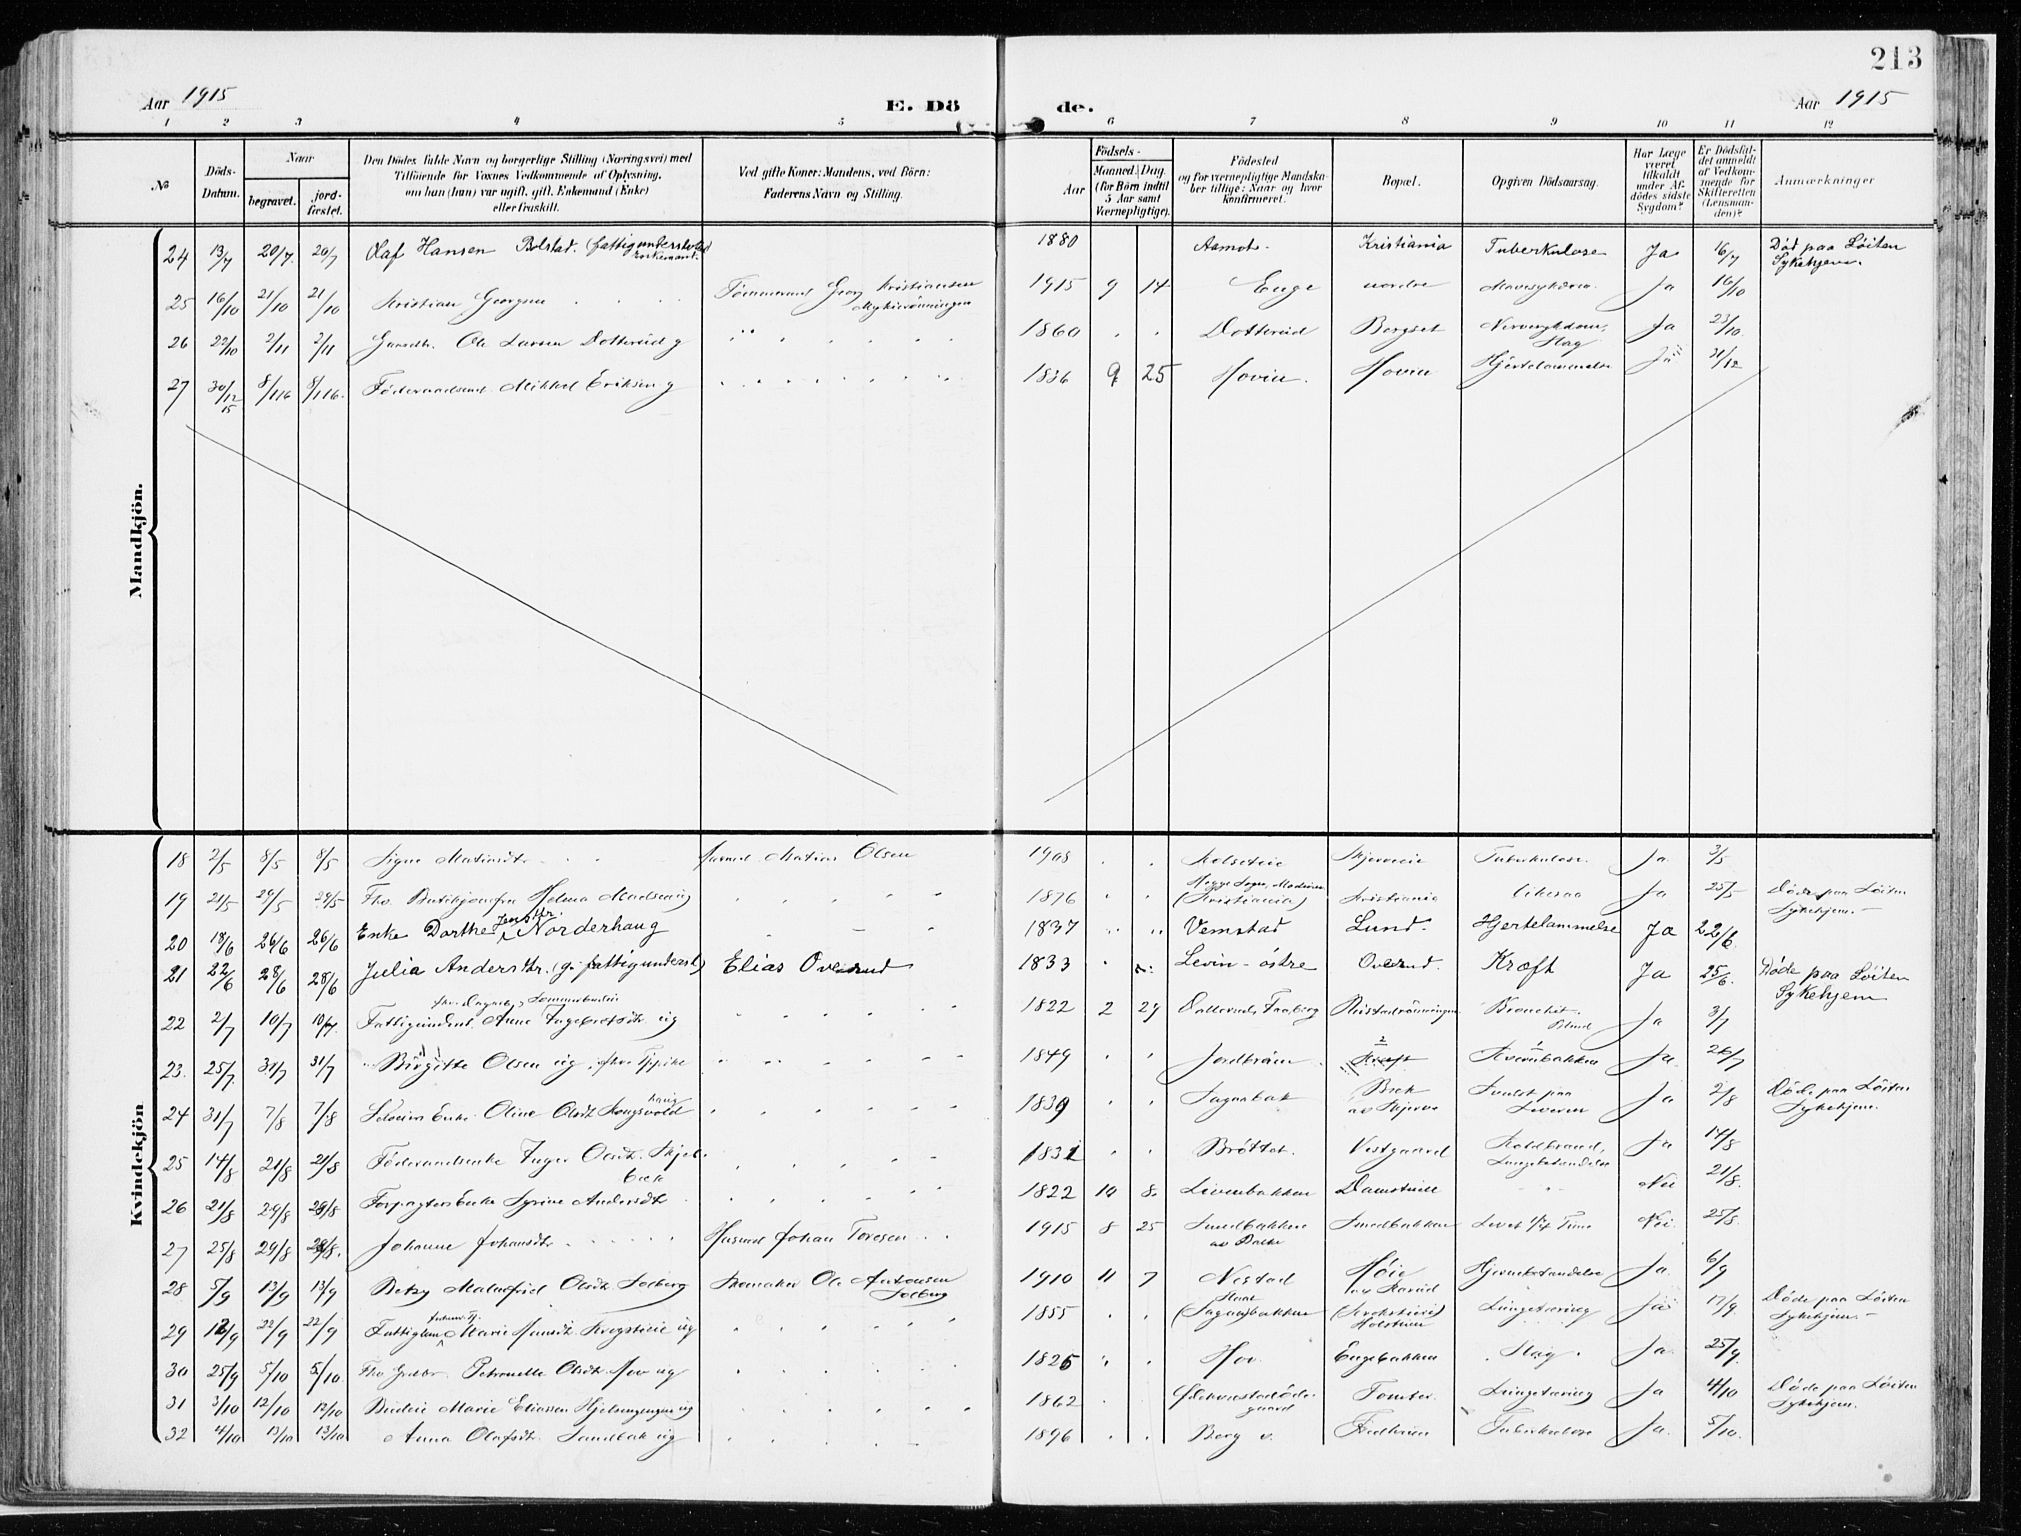 213
Aar 1915 E. Dö de. Aar 1915
1 2 3 4 5 6 7 8 9 10 11 12
No Döds-Datum. Naar begravet. jord-fæstet. Den Dödes fulde Navn og borgerlige Stilling (Næringsvei) med Tilföiende for Voxnes Vedkommende af Oplysning, om han (hun) var ugift, gift, Enkemand (Enke) eller fraskilt. Ved gifte Koner: Mandens, ved Börn: Faderens Navn og Stilling. Aar Födsels- Maaned. Dag. (for Börn indtil 5 Aar samt Værnepligtige). Födested og for værnepligtige Mandska-ber tillige: Naar og hvor konfirmeret. Bopæl. Opgiven Dödsaarsag. Har Læge været tilkaldt under Af-dödes sidste Sygdom? Er Dödsfal-det anmeldt af Vedkom-mende for Skifteretten (Lensman-den)? Anmærkninger
Mandkjön.
24 13/7 20/7 20/7 Olaf Hansen Bolstad. (fattigunderstøttet enkemand. 1880 Aamot. Kristiania Tuberkulose Ja 16/7 Død paa Løiten Sykehjem.
25 16/10 21/10 21/10 Kristian Georgsen Tømmermd Georg Kristiansen 1915 9 14 Enge nordre Ja 16/10
26 22/10 2/11 2/11 Gaardbr. Ole Larsen Dotterud g 1860 Dotterud Bergset Nervesykdom, Slag Ja 23/10
27 30/12 15 8/1 16 8/1 16. Føderaadsmd. Mikkel Eriksen g 1836 9 25 Hovin. Hovin Hjertelammelse Ja 31/12
Kvindekjön
18 2/5 8/5 8/5 Signe Matiasdtr Husmd. Matias Olsen 1908 Tuberkulose. Ja 3/5
19 21/5 29/5 29/5 Fhv. Butikjomfru Helma Madsen ug 1876 (Kristiania) Kristiania likesaa Ja 25/5 Døde paa Løiten Sykehjem.
20 18/6 26/6 26/6 Enke Dorthe Jensdtr. Norderhaug 1837 Vemstad Lund. Hjertelammelse Ja 22/6
21 22/6 28/6 28/6 Julia Andersdtr. (g. fattigunderst) Elias Overud 1833 Levin-östre Overud. Kræft Ja 25/6. Døde paa Løiten Sykehjem
22 2/7 10/7 10/7 Fattigunderst. Anne Ingebretsdtr ug 1822 2 29 Ja 3/7
23. 25/7 31/7 31/7 Birgitte Olsen ug. 1849 Jordbröen Kræft Kvernbakken Ja 26/7
24 31/7 7/8 7/8 Enke Oline Olsdtr Kongsvold haug 1839 Sagbak Bak av Skjerve Svulst paa Leveren Ja 2/8 Døde paa Løiten Sykehjem.
25 14/8 21/8 21/8 Føderaadsenke Inger Olsdtr Skjel-bek 1831 Bröttet. Vestgaard Koldbrand, Lungebetændelse Ja 14/8
26 21/8 29/8 29/8 Forpagters Enke Syrine Andersdtr 1822 10 8. Livenbakken Damstuen Nei 21/8.
27 25/8 29/8 29/8. Johanne Johansdtr Husmd Johan Toresen 1915 8 25 Smedbakken Smedbakken Levet 1/4 Time Nei. 25/8.
28 5/9 13/9 13/9 Betzy Malmfrid Olsdtr Solberg Skomaker Ole Antonsen Solberg 1910 11 7 Nestad Höie Hjernebetændelse Ja 6/9
29 12/9 22/9 22/9 Fattiglem Marie Hansdtr. ug 1855 (Sagbakken Lungetæring Ja 17/9. Døde paa Løiten Sykehjem.
30 25/9 5/10 5/10. Petronelle Olsdtr Hov ug 1826 Hov. Engebakken Slag. Ja. 25/9.
31 3/10 12/10 12/10 Budeie Marie Eliassen Hjelmengen ug 1862 Tomter. Lungetæring Ja 4/10 Døde paa Løiten Sykehjem.
32 4/10 13/10 13/10 Anna Olafsdtr. Sandbak ug 1896 Berg v. Tuberkulose Ja. 5/10.